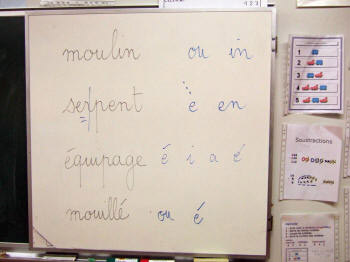 moulin ou in
serpent e en
équipage é i a é
mouillé ou é
1
2
3
4
5
Soustractions